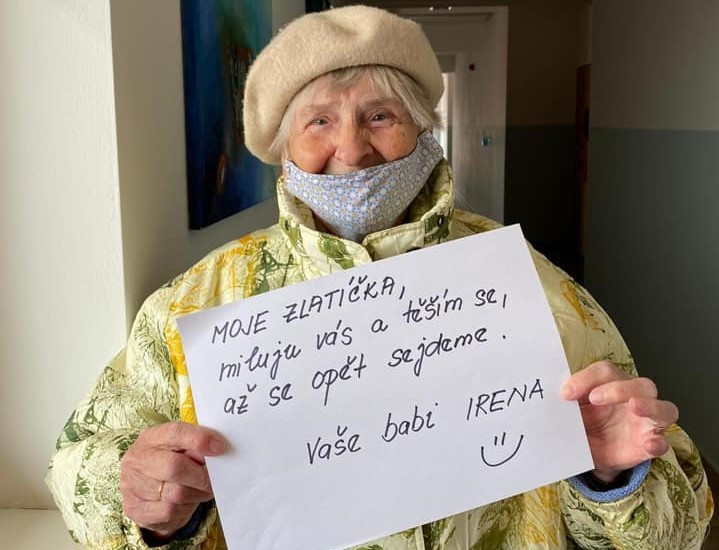 MOJE ZLATÍČKA,
miluju vás a těším se,
až se opět sejdeme.
Vaše babi IRENA